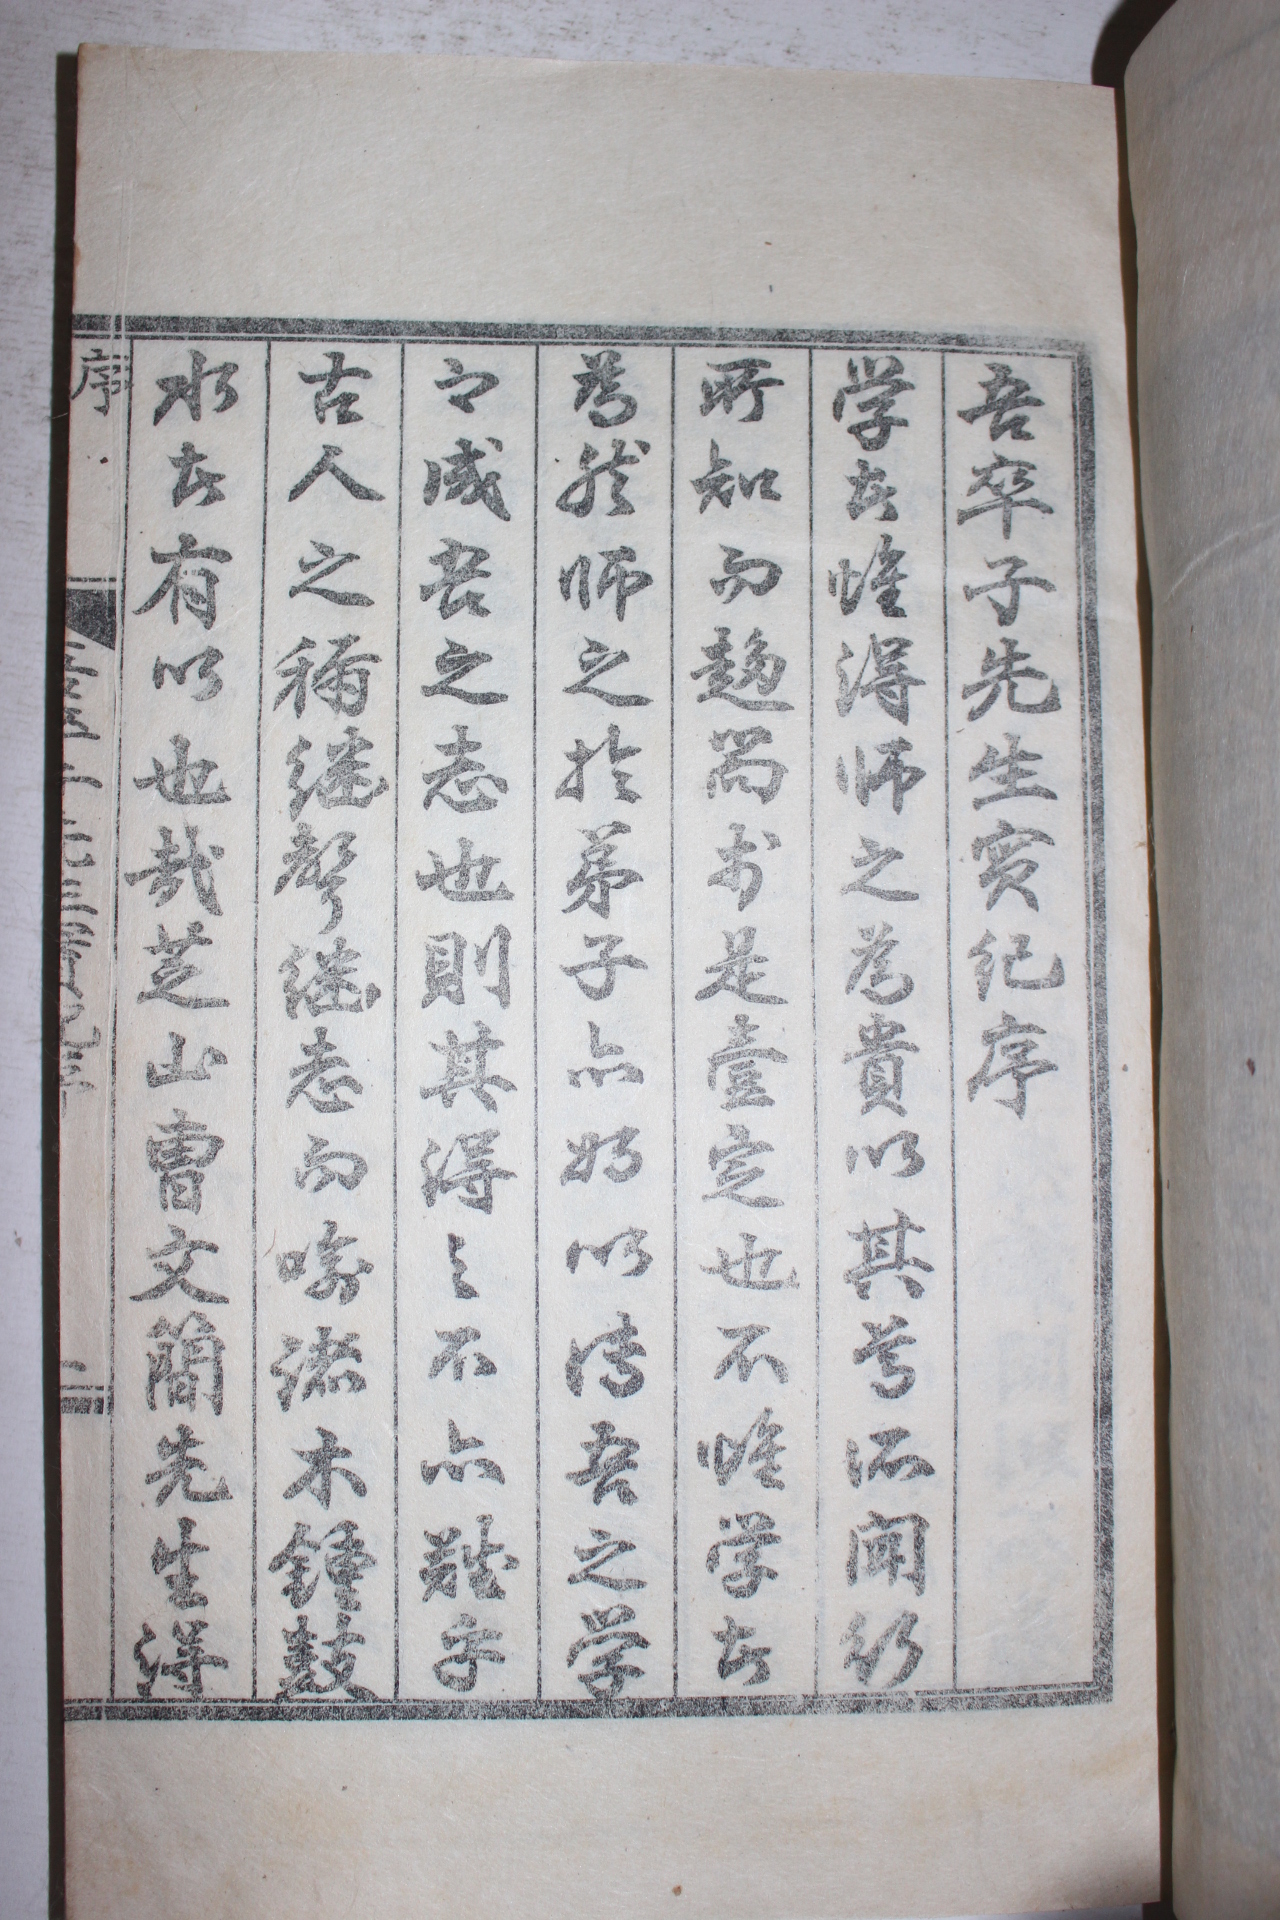 吾卒子先生實紀序
学者惟得師之為貴以其尊所聞行
所知而趨尚於是壹定也不惟学者
為然師之於弟子亦好以傳吾之学
成吾之志也則其得之不亦難乎
古人之稱継聲継志而喻諸木鍾鼓
水者有以也哉芝山曺文簡先生得
序